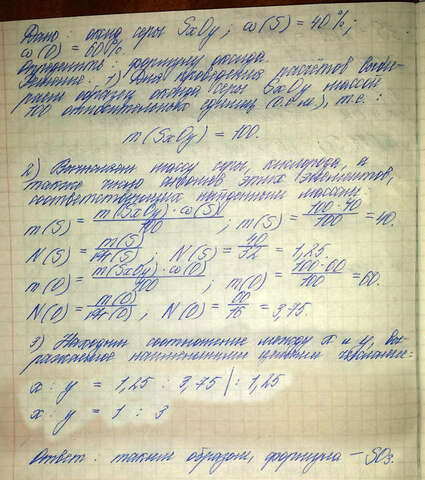 Дано: оксид серы SxOy; ω(S) = 40%;
ω(O) = 60%.
Определить: формулу оксида.
Решение: 1) Для проведения расчётов выбе-
рем образец оксида серы SxOy массой
100 относительных единиц (о.е.м), т.е.:
m(SxOy) = 100.
2) Вычислим массу серы, кислорода, а
также число атомов этих элементов,
соответствующих найденным массам:
m(S) = m(SxOy) · ω(S) / 100 ; m(S) = 100 · 40 / 100 = 40.
N(S) = m(S) / Ar(S) ; N(S) = 40 / 32 = 1,25
m(O) = m(SxOy) · ω(O) / 100 ; m(O) = 100 · 60 / 100 = 60.
N(O) = m(O) / Ar(O) , N(O) = 60 / 16 = 3,75.
3) Находим соотношение между x и y, вы-
раженное наименьшими целыми числами:
x : y = 1,25 : 3,75 | : 1,25
x : y = 1 : 3
Ответ: таким образом, формула – SO₃.